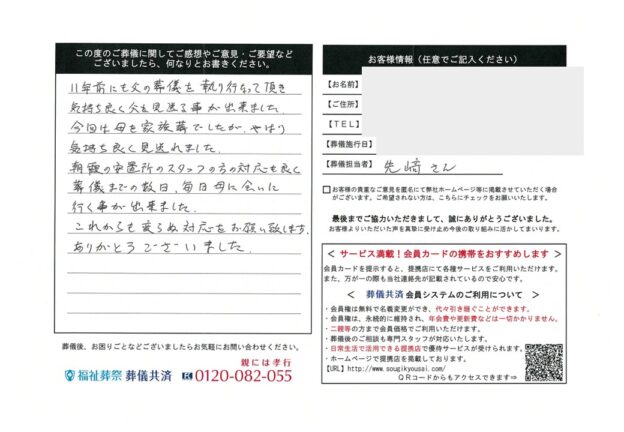 この度のご葬儀に関してご感想やご意見・ご要望など
ございましたら、何なりとお書きください。
11年前にも父の葬儀を執り行なって頂き
気持ち良く父を見送る事が出来ました。
今回は母を家族葬でしたが、やはり
気持ち良く見送れました。
朝霞の安置所のスタッフの方の対応も良く
葬儀までの数日、毎日母に会いに
行く事が出来ました。
これからも変らぬ対応をお願い致します。
ありがとうございました。
葬儀後、お困りごとなどございましたらお気軽にお問い合わせください。
親には孝行
福祉葬祭 葬儀共済 0120-082-055
お客様情報（任意でご記入ください）
【お名前】
【ご住所】
【TEL】
【葬儀施行日】
【葬儀担当者】 先﨑さん
お客様の貴重なご意見を匿名にて弊社ホームページ等に掲載させていただく場合
がございます。ご希望されない方は、こちらにチェックをお願いいたします。
最後までご協力いただきまして、誠にありがとうございました。
お客様よりいただいた声を真摯に受け止め今後の取り組みに活かしてまいります。
＜ サービス満載！会員カードの携帯をおすすめします ＞
会員カードを提示すると、提携店にて各種サービスをご利用いただけます。
また、万が一の際も当社連絡先が記載されているので安心です。
＜ 葬儀共済 会員システムのご利用について ＞
・会員権は無料で名義変更ができ、代々引き継ぐことができます。
・会員権は、永続的に維持され、年会費や更新費などは一切かかりません。
・二親等の方まで会員価格でご利用いただけます。
・葬儀後のご相談も専門スタッフが対応いたします。
・日常生活で活用できる提携店で優待サービスが受けられます。
・ホームページで提携店を掲載しております。
【URL】http://www.sougikyousai.com/
QRコードからもアクセスできます⇒